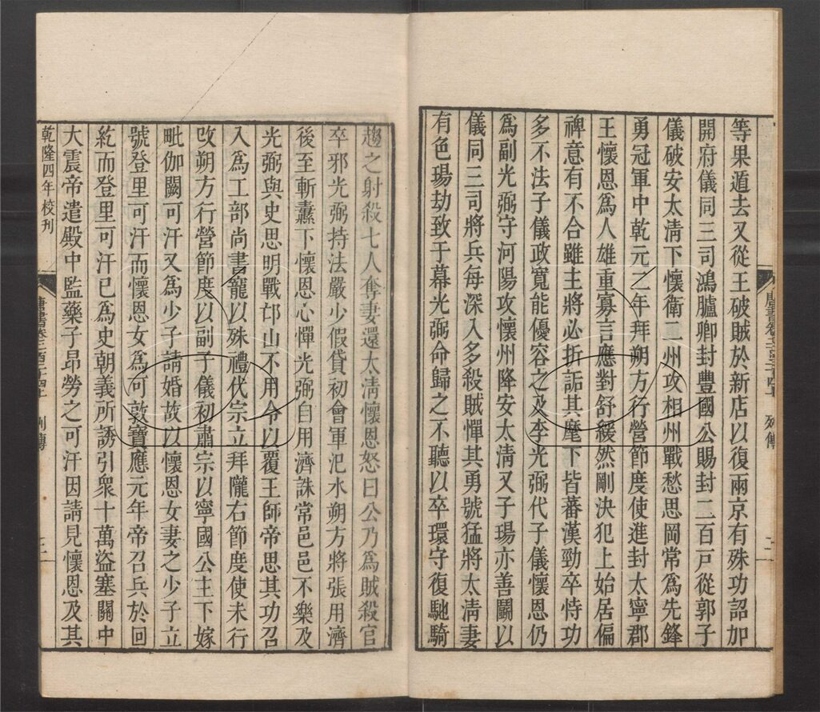 等果遁去又從王破賊於新店以復兩京有殊功詔加
開府儀同三司鴻臚卿封豐國公賜封二百戸從郭子
儀破安太清下懷衛二州攻相州戰愁思岡常爲先鋒
勇冠軍中乾元二年拜朔方行營節度使進封大寧郡
王懷恩爲人雄重寡言應對舒緩然剛決犯上始居偏
裨意有不合雖主將必折詬其麾下皆蕃漢勁卒恃功
多不法子儀政寬能優容之及李光弼代子儀懷恩仍
爲副光弼守河陽攻懷州降安太清又子瑒亦善鬬以
儀同三司將兵每深入多殺賊憚其勇號猛將太清妻
有色瑒劫致于幕光弼命歸之不聽以卒環守復馳騎
趨之射殺七人奪妻還太清懷恩怒曰公乃爲賊殺官
卒邪光弼持法嚴少假貸初會軍汜水朔方將張用濟
後至斬纛下懷恩心憚光弼自用濟誅常邑邑不樂及
光弼與史思明戰邙山不用令以覆王師帝思其功召
入爲工部尚書寵以殊禮代宗立拜隴右節度使未行
改朔方行營節度以副子儀初肅宗以寧國公主下嫁
毗伽闕可汗又爲少子請婚故以懷恩女妻之少子立
號登里可汗而懷恩女爲可敦寶應元年帝召兵於回
紇而登里可汗已爲史朝義所誘引衆十萬盜塞關中
大震帝遣殿中監藥子昂勞之可汗因請見懷恩及其
乾隆四年校刊
列傳